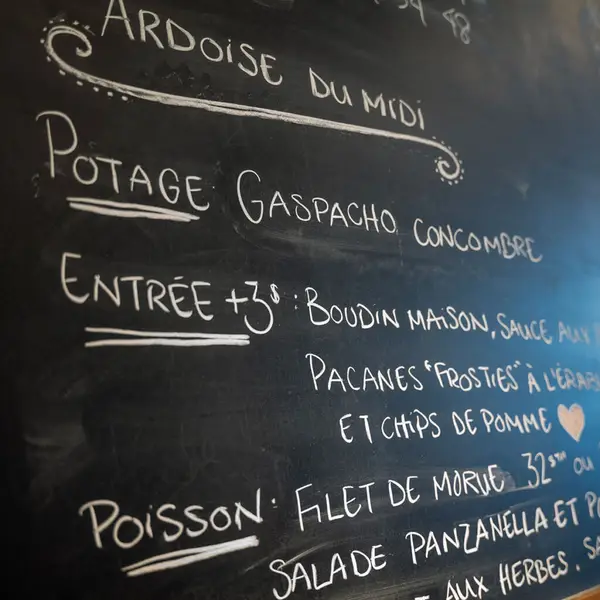 ARDOISE DU MIDI
POTAGE: GASPACHO CONCOMBRE
ENTRÉE +3$: BOUDIN MAISON, SAUCE AUX
PACANES "FROSTIES" À L'ÉRAB
ET CHIPS DE POMME
POISSON: FILET DE MORUE 32$ OU
SALADE PANZANELLA ET
AUX HERBES.